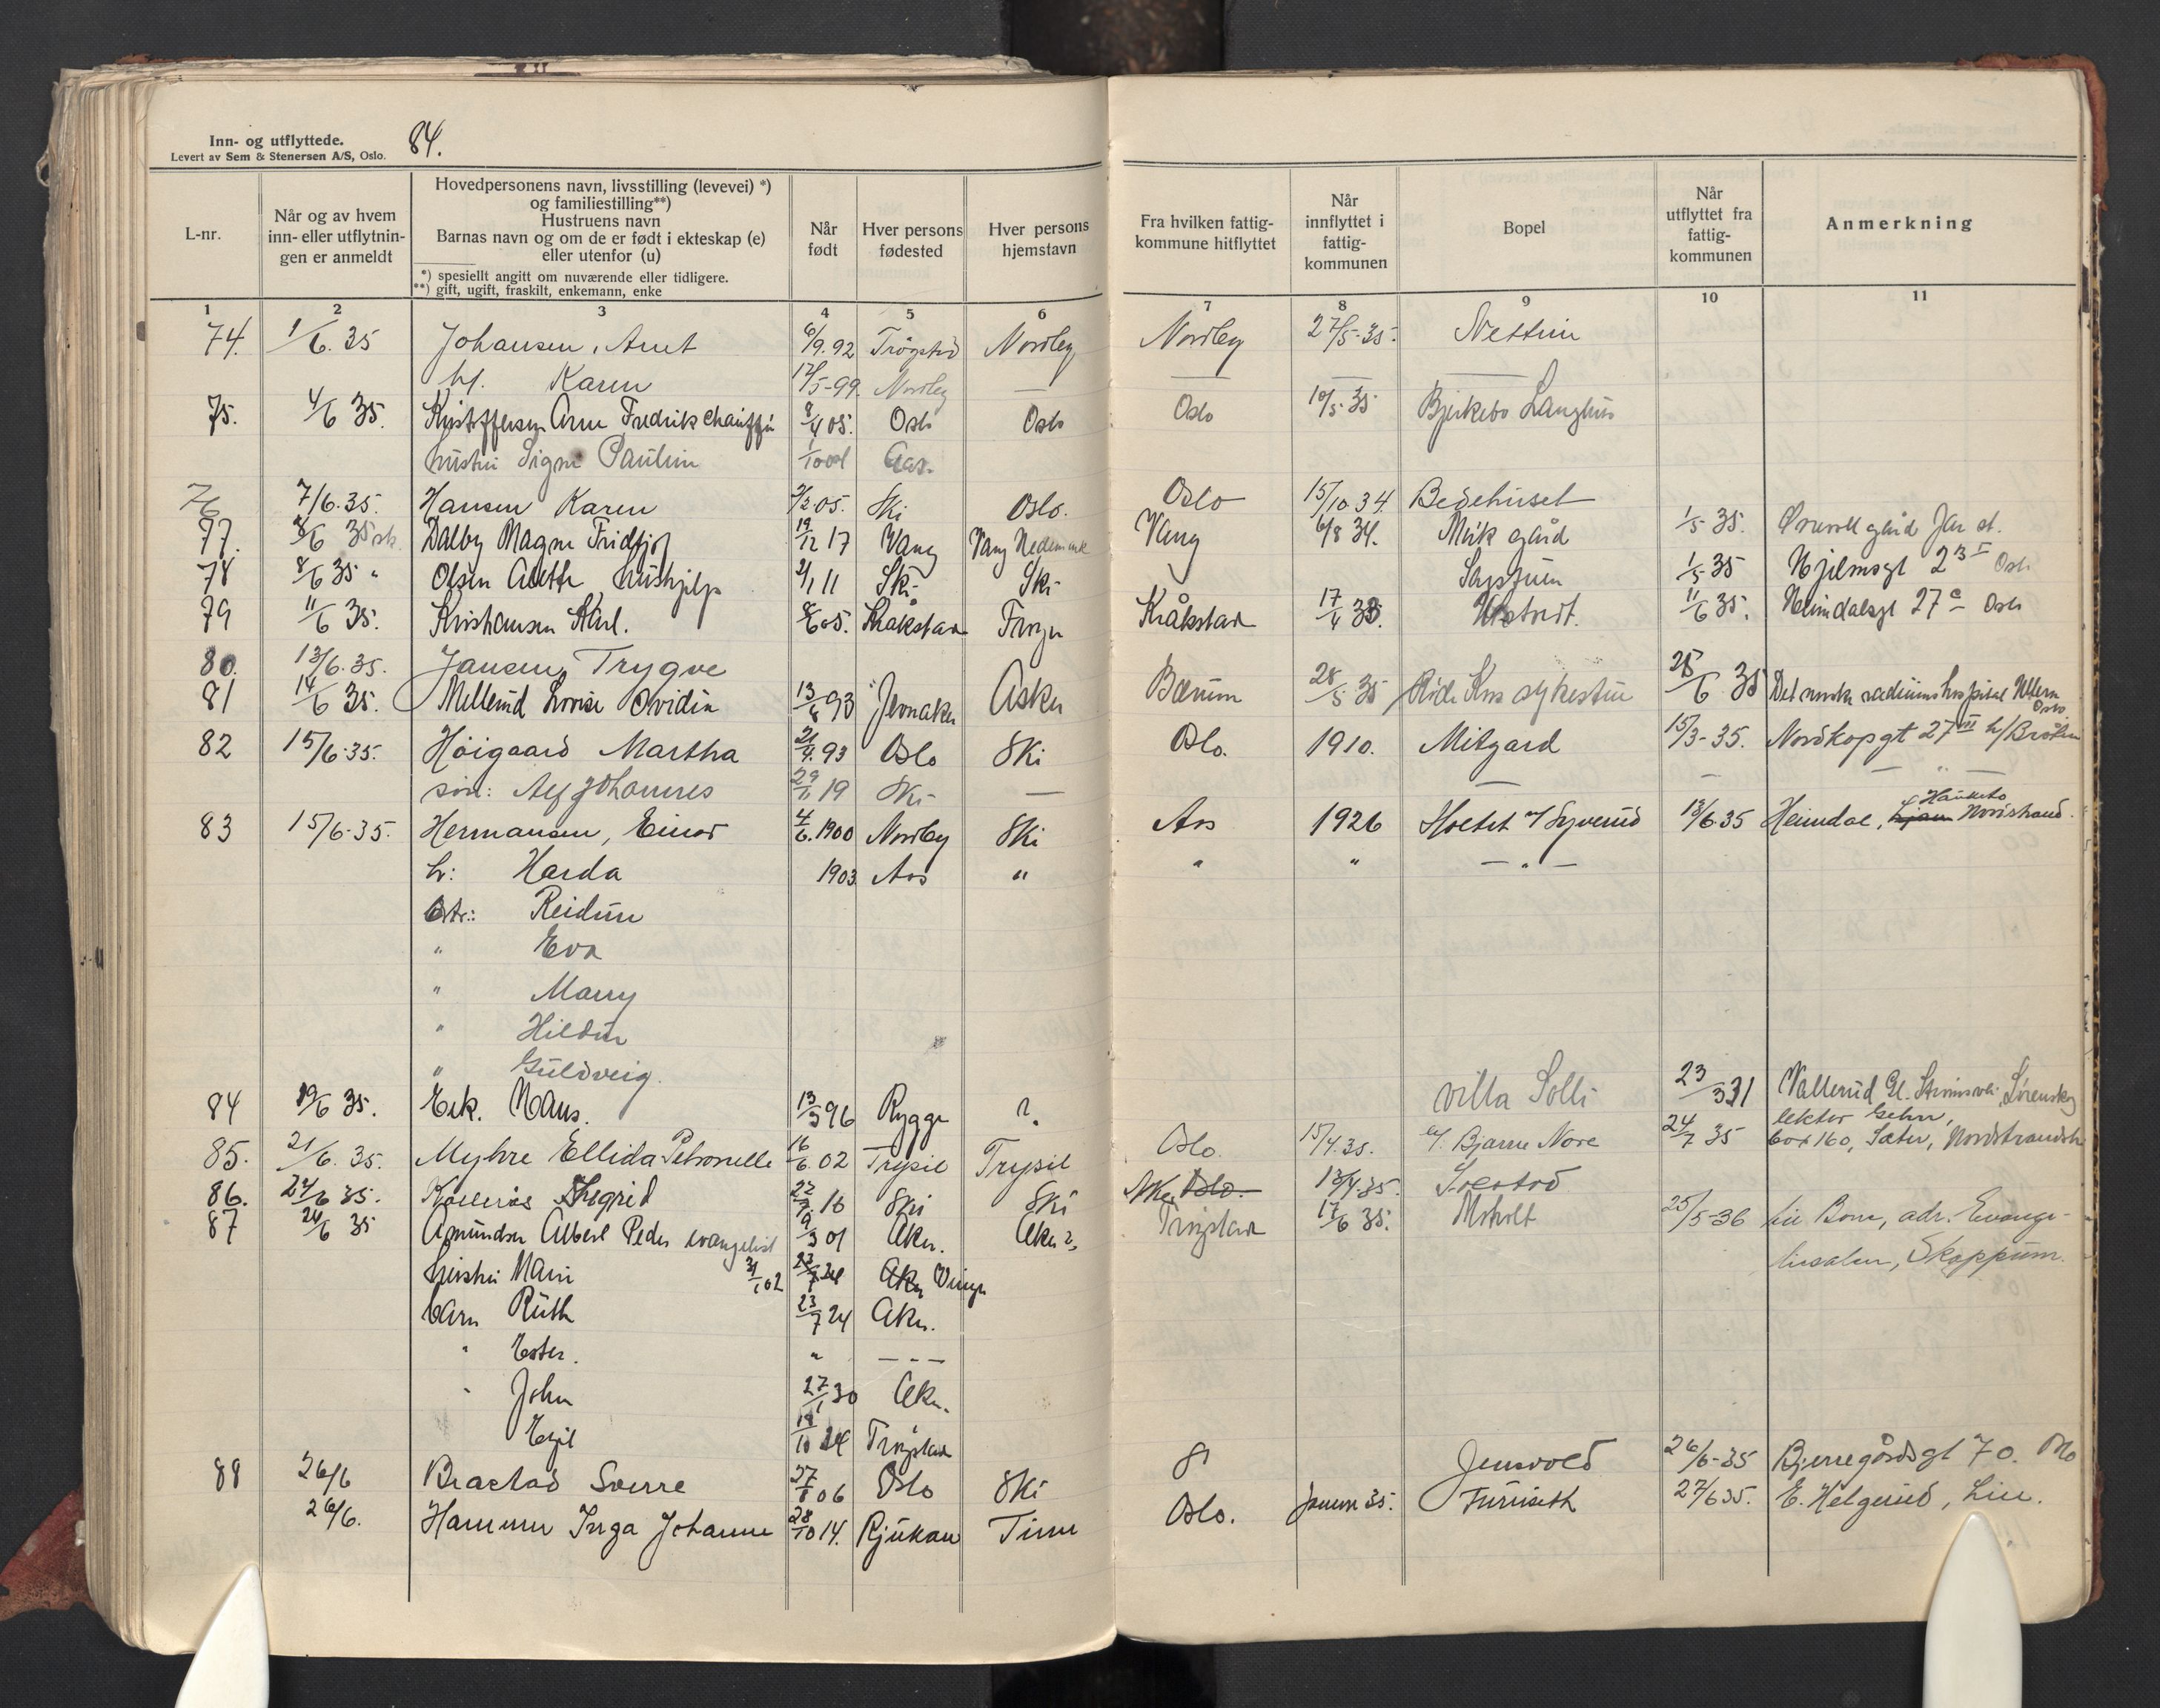 Inn- og utflyttede.
Levert av Sem & Stenersen A/S, Oslo.
84.
L-nr.
Når og av hvem inn- eller utflytnin-gen er anmeldt
Hovedpersonens navn, livsstilling (levevei) *)
og familiestilling**)
Hustruens navn
Barnas navn og om de er født i ekteskap (e)
eller utenfor (u)
*) spesiellt angitt om nuværende eller tidligere.
**) gift, ugift, fraskilt, enkemann, enke
Når født
Hver persons fødested
Hver persons hjemstavn
Fra hvilken fattig-kommune hitflyttet
Når innflyttet i fattig-kommunen
Bopel
Når utflyttet fra fattig-kommunen
Anmerkning
1 2 3 4 5 6 7 8 9 10 11
74. 1/6. 35 Johansen, Arnt 6/9. 92 Trøgstad Nordby Nordby 27/5-35.
h. Karen 5-99. Nordby —
75. 4/6 35. Kristoffersen Arne Fredrik chauffør 8/4 05. Oslo Oslo Oslo 10/5 35 Bjerkebo Langhus
hustru Signe Pauline 1/10 04 Aas.
76 7/6. 35. Hansen Karen 2/2 05. Ski Oslo. Oslo 15/10 34. Bedehuset
77. 8/6 35 Dalby Magne Fridtjof 19/12 17 Vang Vang Hedemark Vang 6/8 34. Mørk gård 1/5 35. gård Jar st.
78 8/6 35 " Olsen Alette, hushjelp 2/1 11 Ski Ski 1/5 35 Hjelmsgt 23 I Oslo
79 11/6 35. Kristiansen Karl. 8/6 05. Kråkstad Frogn Kråkstad 17/4 33. 11/6 35. Heimdalsgt 27 c Oslo
80. 13/6. 35. Jansen, Trygve
81 14/6 35. Mellerud Lovise Ovidia 13/8 93 Jevnaker Asker Bærum 28/5 35 Røde Kors sykestue 25/6 35 Det norske radiumhospital Ullern Oslo
82 15/6. 35. Høigaard Martha 21/9. 93 Oslo Ski Oslo. 1910. Mitgard 15/3-35. Nordkapgt 27 III h/Bråten
søn: Alf Johannes 29/11 19 Ski — — — " —
83 15/6. 35. Hermansen, Einar 4/6. 1900 Nordby Ski Aas 1926 Holtet u/ Syverud 13/6. 35 Heimdal, Ljan Hauketo Nordstrand.
h: Harda 1903. Aas " " " — " —
dtr.: Reidun
" Eva
" Marry
" Hildur
" Guldveig.
84 19/6 35. Eek. Hans. 13/3 96 Rygge ? Villa Solli 23/3 31 Vallerud Gl. Lørenskog
85. 21/6. 35. Myhre Ellida Petronelle 16/6. 02 Trysil Trysil Oslo. 15/4. 35. c/. Bjarne Nore 24/7 35 lektor box 160, Sæter, Nordstrandsh
86. 24/6 35. Kollerås Ingrid 22/7. 16 Ski Ski Aker Oslo. 13/4. 35.
87 24/6 35 Amundsen Albert Peder evangelist 9/3 01 Aker. Aker ? Trøgstad 17/6 35. Moholt 25/5-36 Lie Bom, adr. Evange-
hustru Marie 31/1 02 Aker lisalen, Skoppum.
barn Ruth 23/7 24 Aker.
" Ester. " — " —
" John 27/1 30 Aker.
Egil 19/10 Trøgstad
88 26/6 Braetad Sverre 27/8 06 Oslo Ski Jensvold 26/6-35 Bjerregårdsgt 70. Oslo
26/6. Hammer Inga Johanne 28/10 14. Rjukan Tinn Oslo. januar 35. Furuseth 27/6 35. E. Helgerud, Lier.